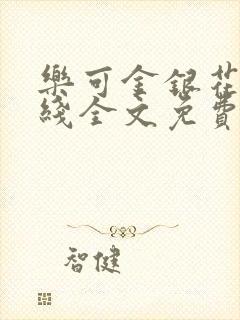 樂可金銀花
綫全文免費
智健